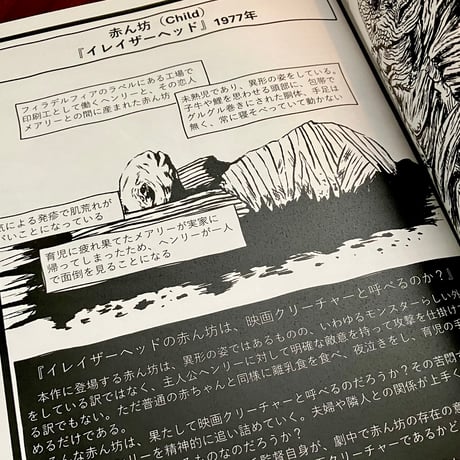 赤ん坊（Child）
『イレイザーヘッド』1977年
フィラデルフィアのラベルにある工場で
印刷工として働くヘンリーと、その恋人
メアリーとの間に産まれた赤ん坊
未熟児であり、異形の姿をしている。
子牛や鯉を思わせる頭部に、包帯で
グルグル巻きにされた胴体、手足は
無く、常に寝そべっていて動かない
気による発疹で肌荒れが
いことになっている
育児に疲れ果てたメアリーが実家に
帰ってしまったため、ヘンリーが一人
で面倒を見ることになる
『イレイザーヘッドの赤ん坊は、映画クリーチャーと呼べるのか？』
本作に登場する赤ん坊は、異形の姿ではあるものの、いわゆるモンスターらしい外
をしている訳ではなく、主人公ヘンリーに対して明確な敵意を持って攻撃を仕掛け
る訳でもない。ただ普通の赤ちゃんと同様に離乳食を食べ、夜泣きをし、育児の手
めるだけである。
んな赤ん坊は、果たして映画クリーチャーと呼べるのだろうか？その苦悶す
リーを精神的に追い詰めていく。夫婦や隣人との関係が上手く
るものなのだろうか？
督自身が、劇中で赤ん坊の存在の意
クリーチャーであるかど